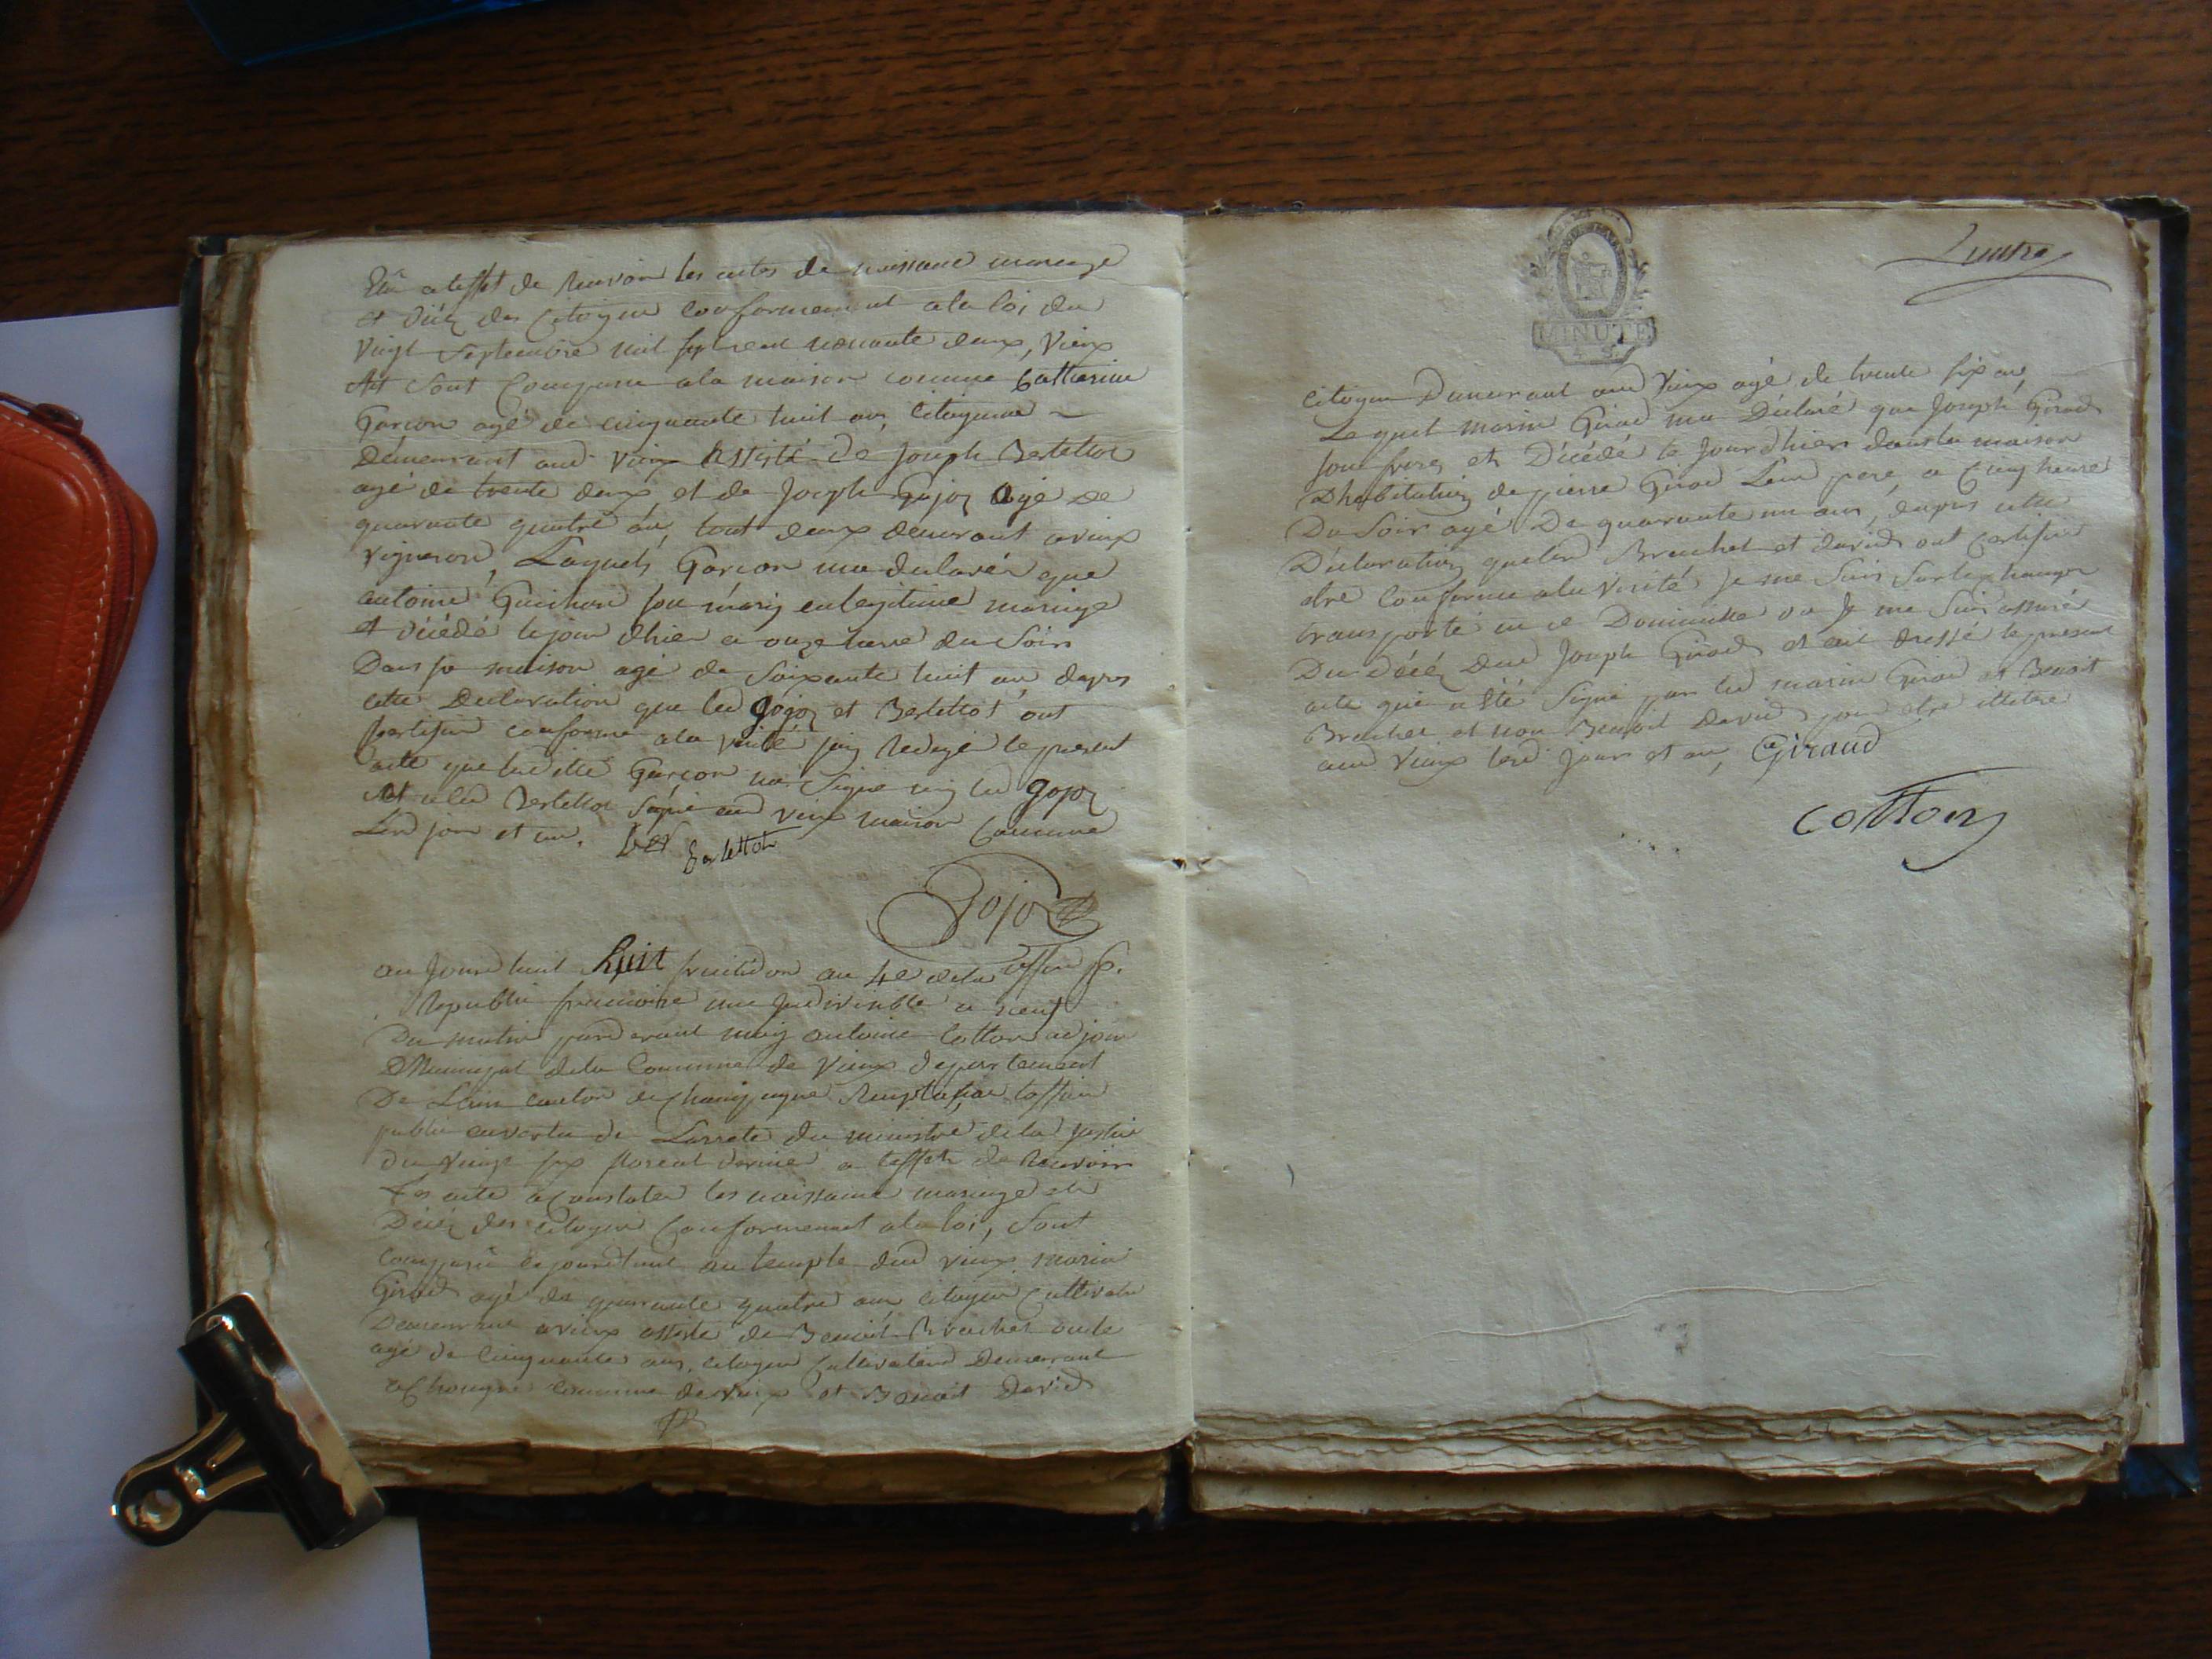 a leffet de Recevoir les actes de naissance mariage
et décéz des Citoyen conformement a la loi du
vingt Septembre mil sept cent nonante deux, vieux
Ast Sont Comparu a la maison comune Catherine
Garcon agé de cinquante huit ans, Citoyenne
Demeurant aud vieux Assisté de Joseph Bertettot
agé de trente deux et de Joseph Gojoz agé de
quarante quatre an, tout deux demeurant a vieux
vigneron, Laquele Garcon ma declaréz que
antoine Guichon son mariz en legitime mariage
et décédé le jour dhier a onze heure du Soir
Dans sa maison agé de Soixante huit an dapres
cette Declaration que led Gojoz et Bertettot ont
certifier conforme a la verité jaiz Redigé le present
acte que laditte Garcon na Signé niz led Gojoz
et led Bertettot Signé aud vieux maison Commune
Lesd jour et an. Bertettot
Gojoz
au Jourd huit huit fructidor an 4e de la
Republi francoise une Indivisible a neuf
Du matin pardevant moiz antoine Cotton adjoin
Municipal de la Commune de Vieux departement
De Lain canton de Champagne Remplassan lofficier
public en vertu de Larrete du ministre de la Justice
du vingt six floreal dernier a leffet de Recevoir
Les acte a Constater les naissance mariage et
Décéz des citoyen Conformement a la loi, Sont
Comparu cejourdhuit au temple dud vieux marin
Giraud agé de quarrante quatre an citoyen Cultivate
Demeurant a vieux assisté de Benoit Brachet oncle
agé de Cinquante ans, citoyen Cultivateur Demeurant
a Chongne commune de vieux et Benoit David
MINUTE
citoyen Demeurant aud Vieux agé de trente six an,
Lequel marin Giraud ma Déclaré que Joseph Giraud
son frere et Décédé le Jourdhier dans la maison
Dhabitation de pierre Giraud Leur pere, a Cinq heure
Du Soir agé De quarante un an, dapres cette
Déclaration que led Brachet et david ont Certifier
etre Conforme a la verité Je me Suis Sur le champ
transporté en ce Domicille ou Je me Suis assuré
Du décéz dud Joseph Giraud et ait dressé le present
acte qui a été Signé par led marin Giraud et Benoit
Brachet et non Benoit David pour etre illetere
aud Vieux lesd jour et an, Giraud
cottonz